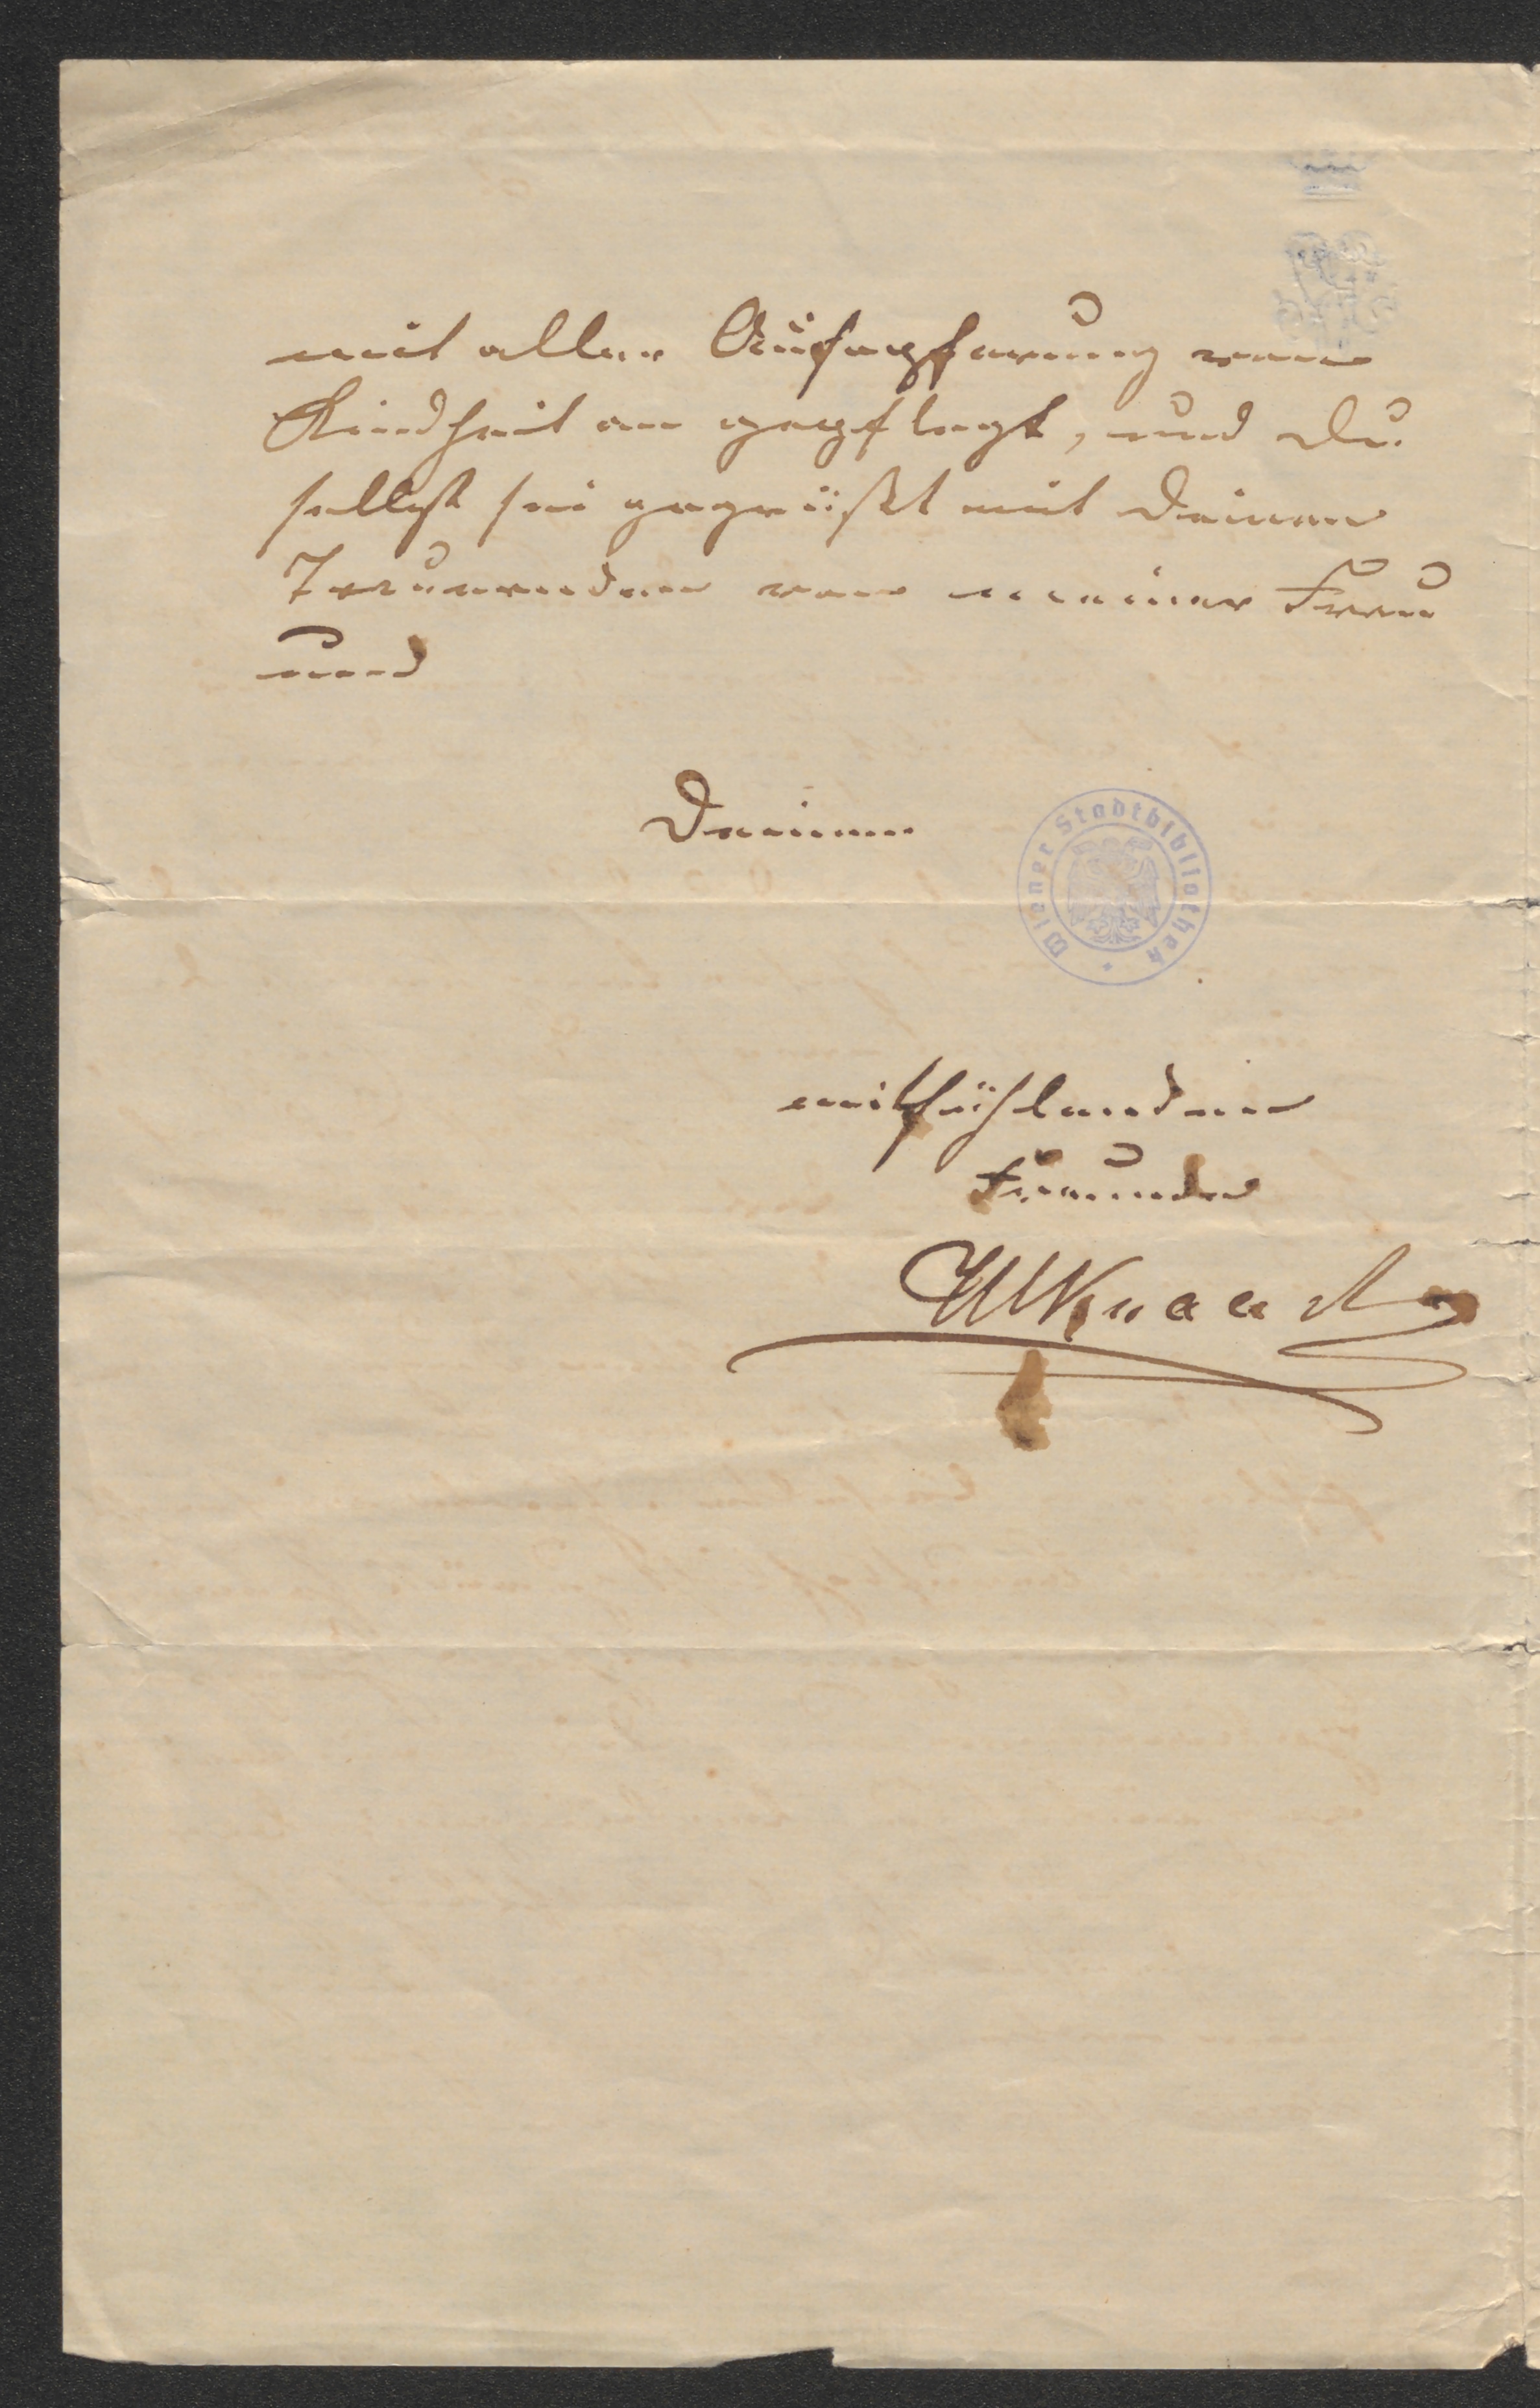 mit aller Aufopferung von
Kindheit an gepflegt, und Du
selbst sei gegrüßt mit Deinen
Trauernden von meiner Frau
und
Deinem
Wiener Stadtbibliothek
mitfühlenden
Freunde
WKnaack